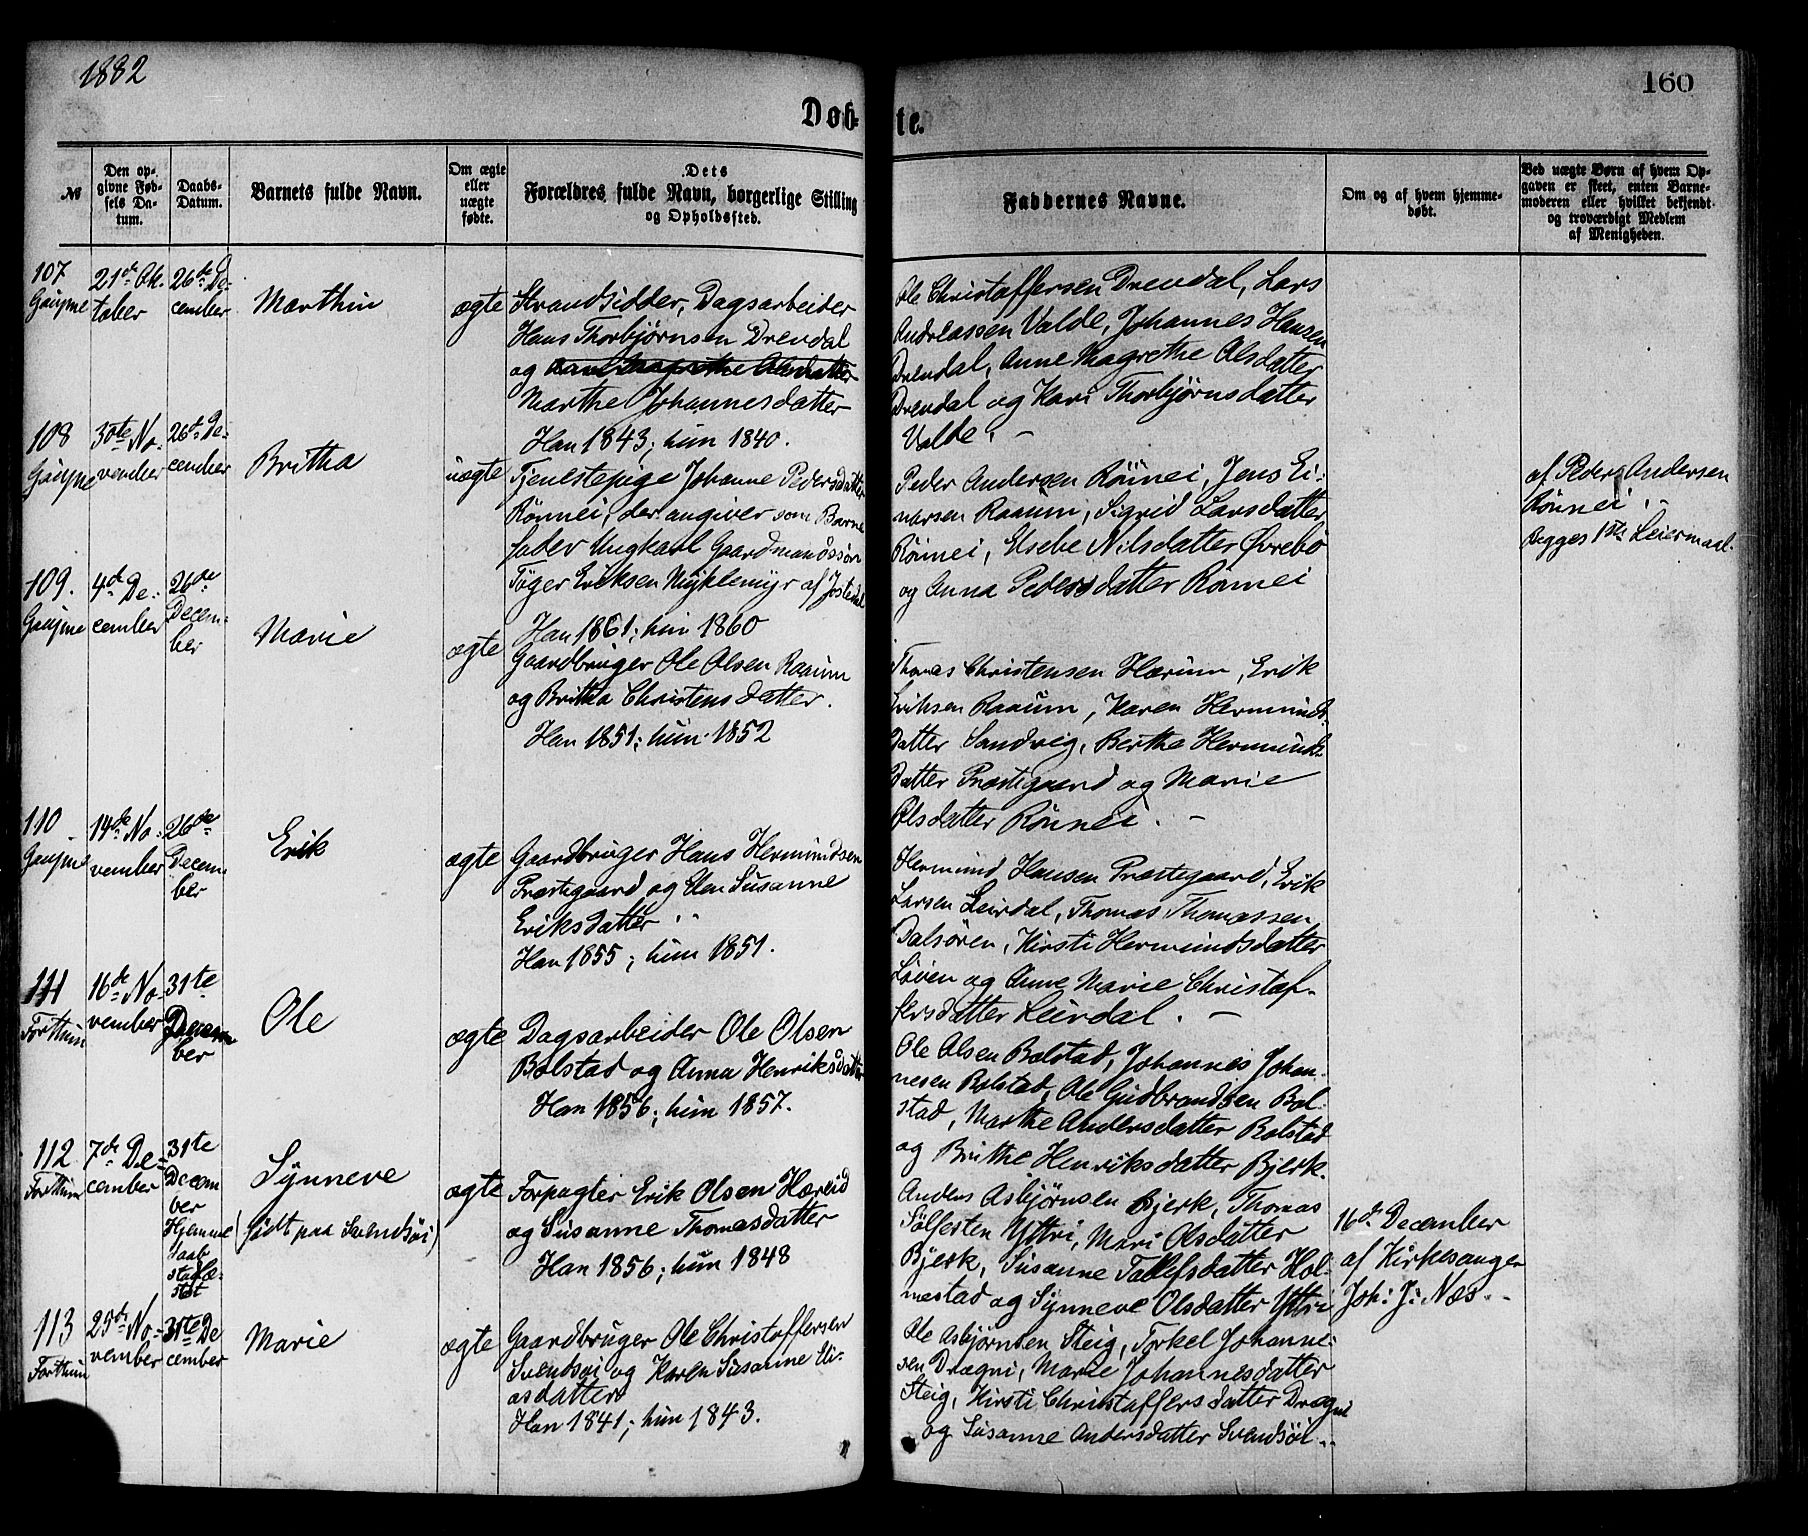 1882
160
Døb-
te.
№
Den op-
givne Fød-
sels Da-
tum.
Daabs-
Datum.
Barnets fulde Navn.
Om ægte
eller
uægte
fødte.
Dets
Forældres fulde Navn, borgerlige Stilling
og Opholdssted.
Faddernes Navne.
Om og af hvem hjemme-
døbt.
Ved uægte Børn af hvem Op-
gaven er skeet, enten Barne-
moderen eller hvilket bekjendt
og troværdigt Medlem
af Menigheden.
107
Gaupne
21de Ok-
tober
26de De-
cember
Marthin
ægte
Strandsidder, Dagsarbeider
Hans Thorbjørnsen Drevdal
og Anne Magrethe Olsdatter
Marthe Johannesdatter
Han 1843; hun 1840.
Ole Christoffersen Drevdal, Lars
Andreassen Valde, Johannes Hansen
Drevdal, Anne Magrethe Olsdatter
Drevdal og Kari Thorbjørnsdatter
Valde. –
108
Gaupne
30te No-
vember
26de De-
cember
Britha
uægte
Tjenestepige Johanne Pedersdatter
Rönnei, der angiver som Barne
fader Ungkarl Gaardmandssøn
Tøger Eriksen Myklemyr af Jostedal
Han 1861; hun 1860
Peder Andersen Rönnei, Jens Ei-
narsen Raaum, Sigrid Larsdatter
Rönnei, Elsebe Nilsdatter Øvrebø
og Anna Pedersdatter Rönnei
af Peder Andersen
Rönnei.
Begges 1ste Leiermaal.
109.
Gaupne
4de De-
cember
26de
Decem-
ber
Marie
ægte
Gaardbruger Ole Olsen Raaum
og Britha Christensdatter.
Han 1851; hun 1852
Thomas Christensen Hærum, Erik
Eriksen Raaum, Karen Hermunds-
datter Sandvig, Berthe Hermunds-
datter Præstegaard og Marie
Olsdatter Rönnei. –
110
Gaupne
14de No-
vember
26de
Decem-
ber
Erik
ægte
Gaardbruger Hans Hermundsen
Præstegaard og Elen Susanne
Eriksdatter
Han 1855; hun 1851.
Hermund Hansen Præstegaard, Erik
Larsen Leirdal, Thomas Thomassen
Dalsören, Kirsti Hermundsdatter
Löien og Anne Marie Christof-
fersdatter Leirdal. –
111
Forthun
16de No-
vember
31te
Decem-
ber
Ole
ægte
Dagsarbeider Ole Olsen
Bolstad og Anna Henriksdatter
Han 1856; hun 1857.
Ole Olsen Bolstad, Johannes Johan-
nesen Bolstad, Ole Gudbrandsen Bol-
stad, Marthe Andersdatter Bolstad
og Brithe Henriksdatter Bjerk.
112
Forthun
7de De-
cember
31te
Decem-
ber
Hjemme
daab
stadfæ-
stet
Synneve
(født paa Svendsöi)
ægte
Forpagter Erik Olsen Hæreid
og Susanne Thomasdatter
Han 1856; hun 1848
Anders Asbjørnsen Bjerk, Thomas
Sölfesten Yttri, Mari Olsdatter
Bjerk, Susanne Tollefsdatter Hol-
mestad og Synneve Olsdatter Yttri
16de December
af Kirkesanger
Joh: J: Næs.
113
Forthun
25de No-
vember
31te De
cember
Marie
ægte
Gaardbruger Ole Christoffersen
Svendsöi og Karen Susanne Eli-
asdatter
Han 1841; hun 1843.
Ole Asbjørnsen Steig, Torkel Johanne-
sen Drægni, Marie Johannesdatter
Steig, Kirsti Christoffersdatter Drægni
og Susanne Andersdatter Svendsöi.